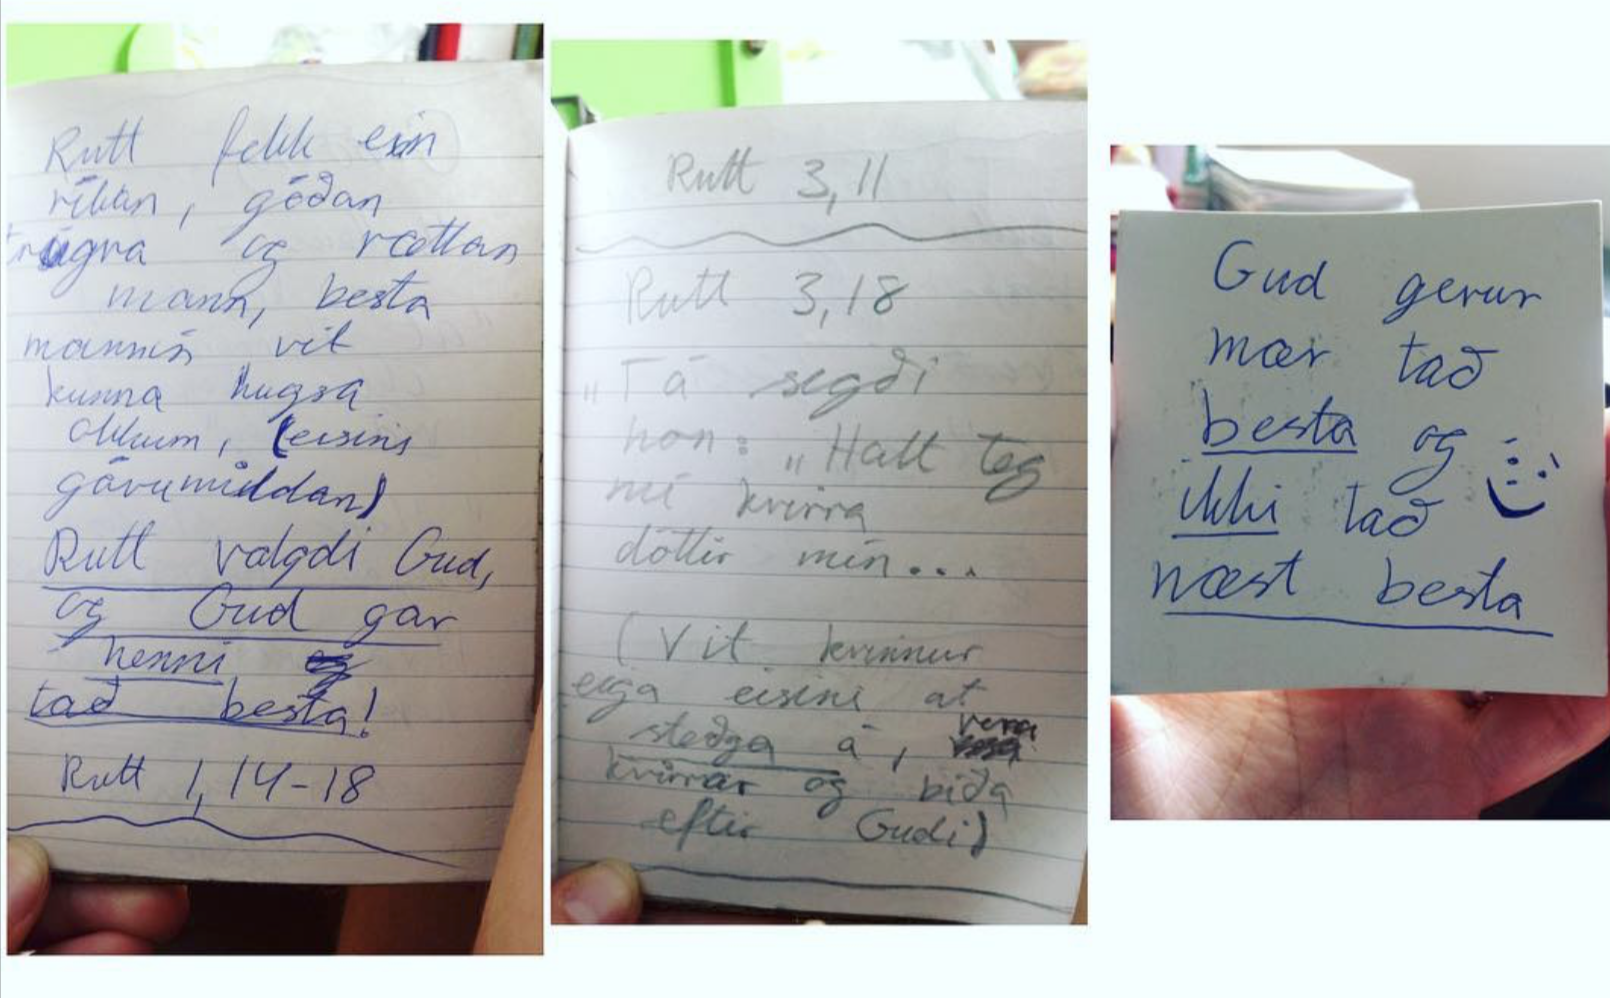 Rutt fekk ein
ríkan, góðan
trúgva og rættan
mann, besta
mannin vit
kunna hugsa
okkum, (eisini
gávumildan)
Rutt valgdi Gud,
og Gud gav
henni
tað besta!
Rutt 1,14-18
Rutt 3,11
Rutt 3,18
"Tá segði
hon: "Halt teg
nú kvirra
dóttir mín...
(Vit kvinnur
eiga eisini at
steðga á, vera
kvirrar og bíða
eftir Gudi)
Gud gevur
mær tað
besta og
ikki tað
næst besta